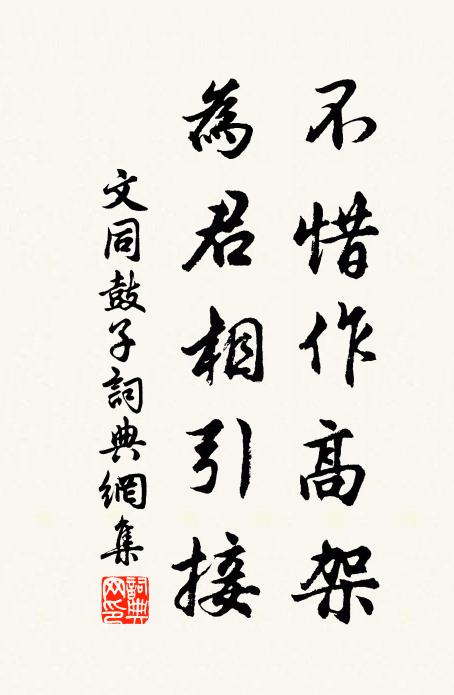 不惜作高架
為君相引接
文同鼓子詞典網集
詞典網印